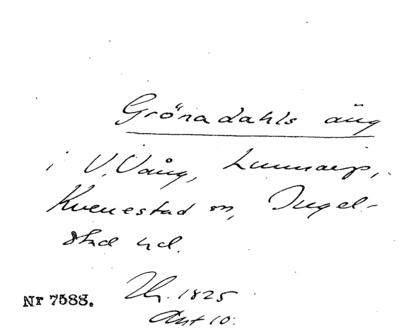 Grönadahls äng
i V. Vång, Lunnarp,
Kverrestad sn, Ingel-
stad hd.
Nr 7588. Th. 1825
Akt 10.